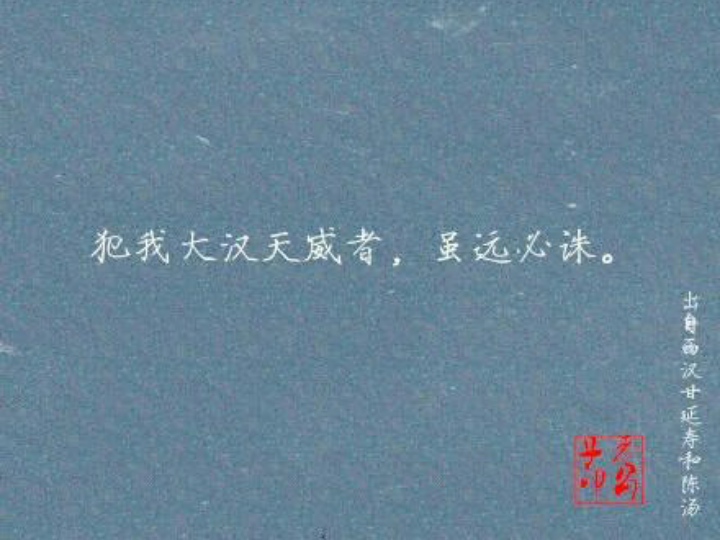 犯我大汉天威者，虽远必诛。
出自西汉甘延寿和陈汤